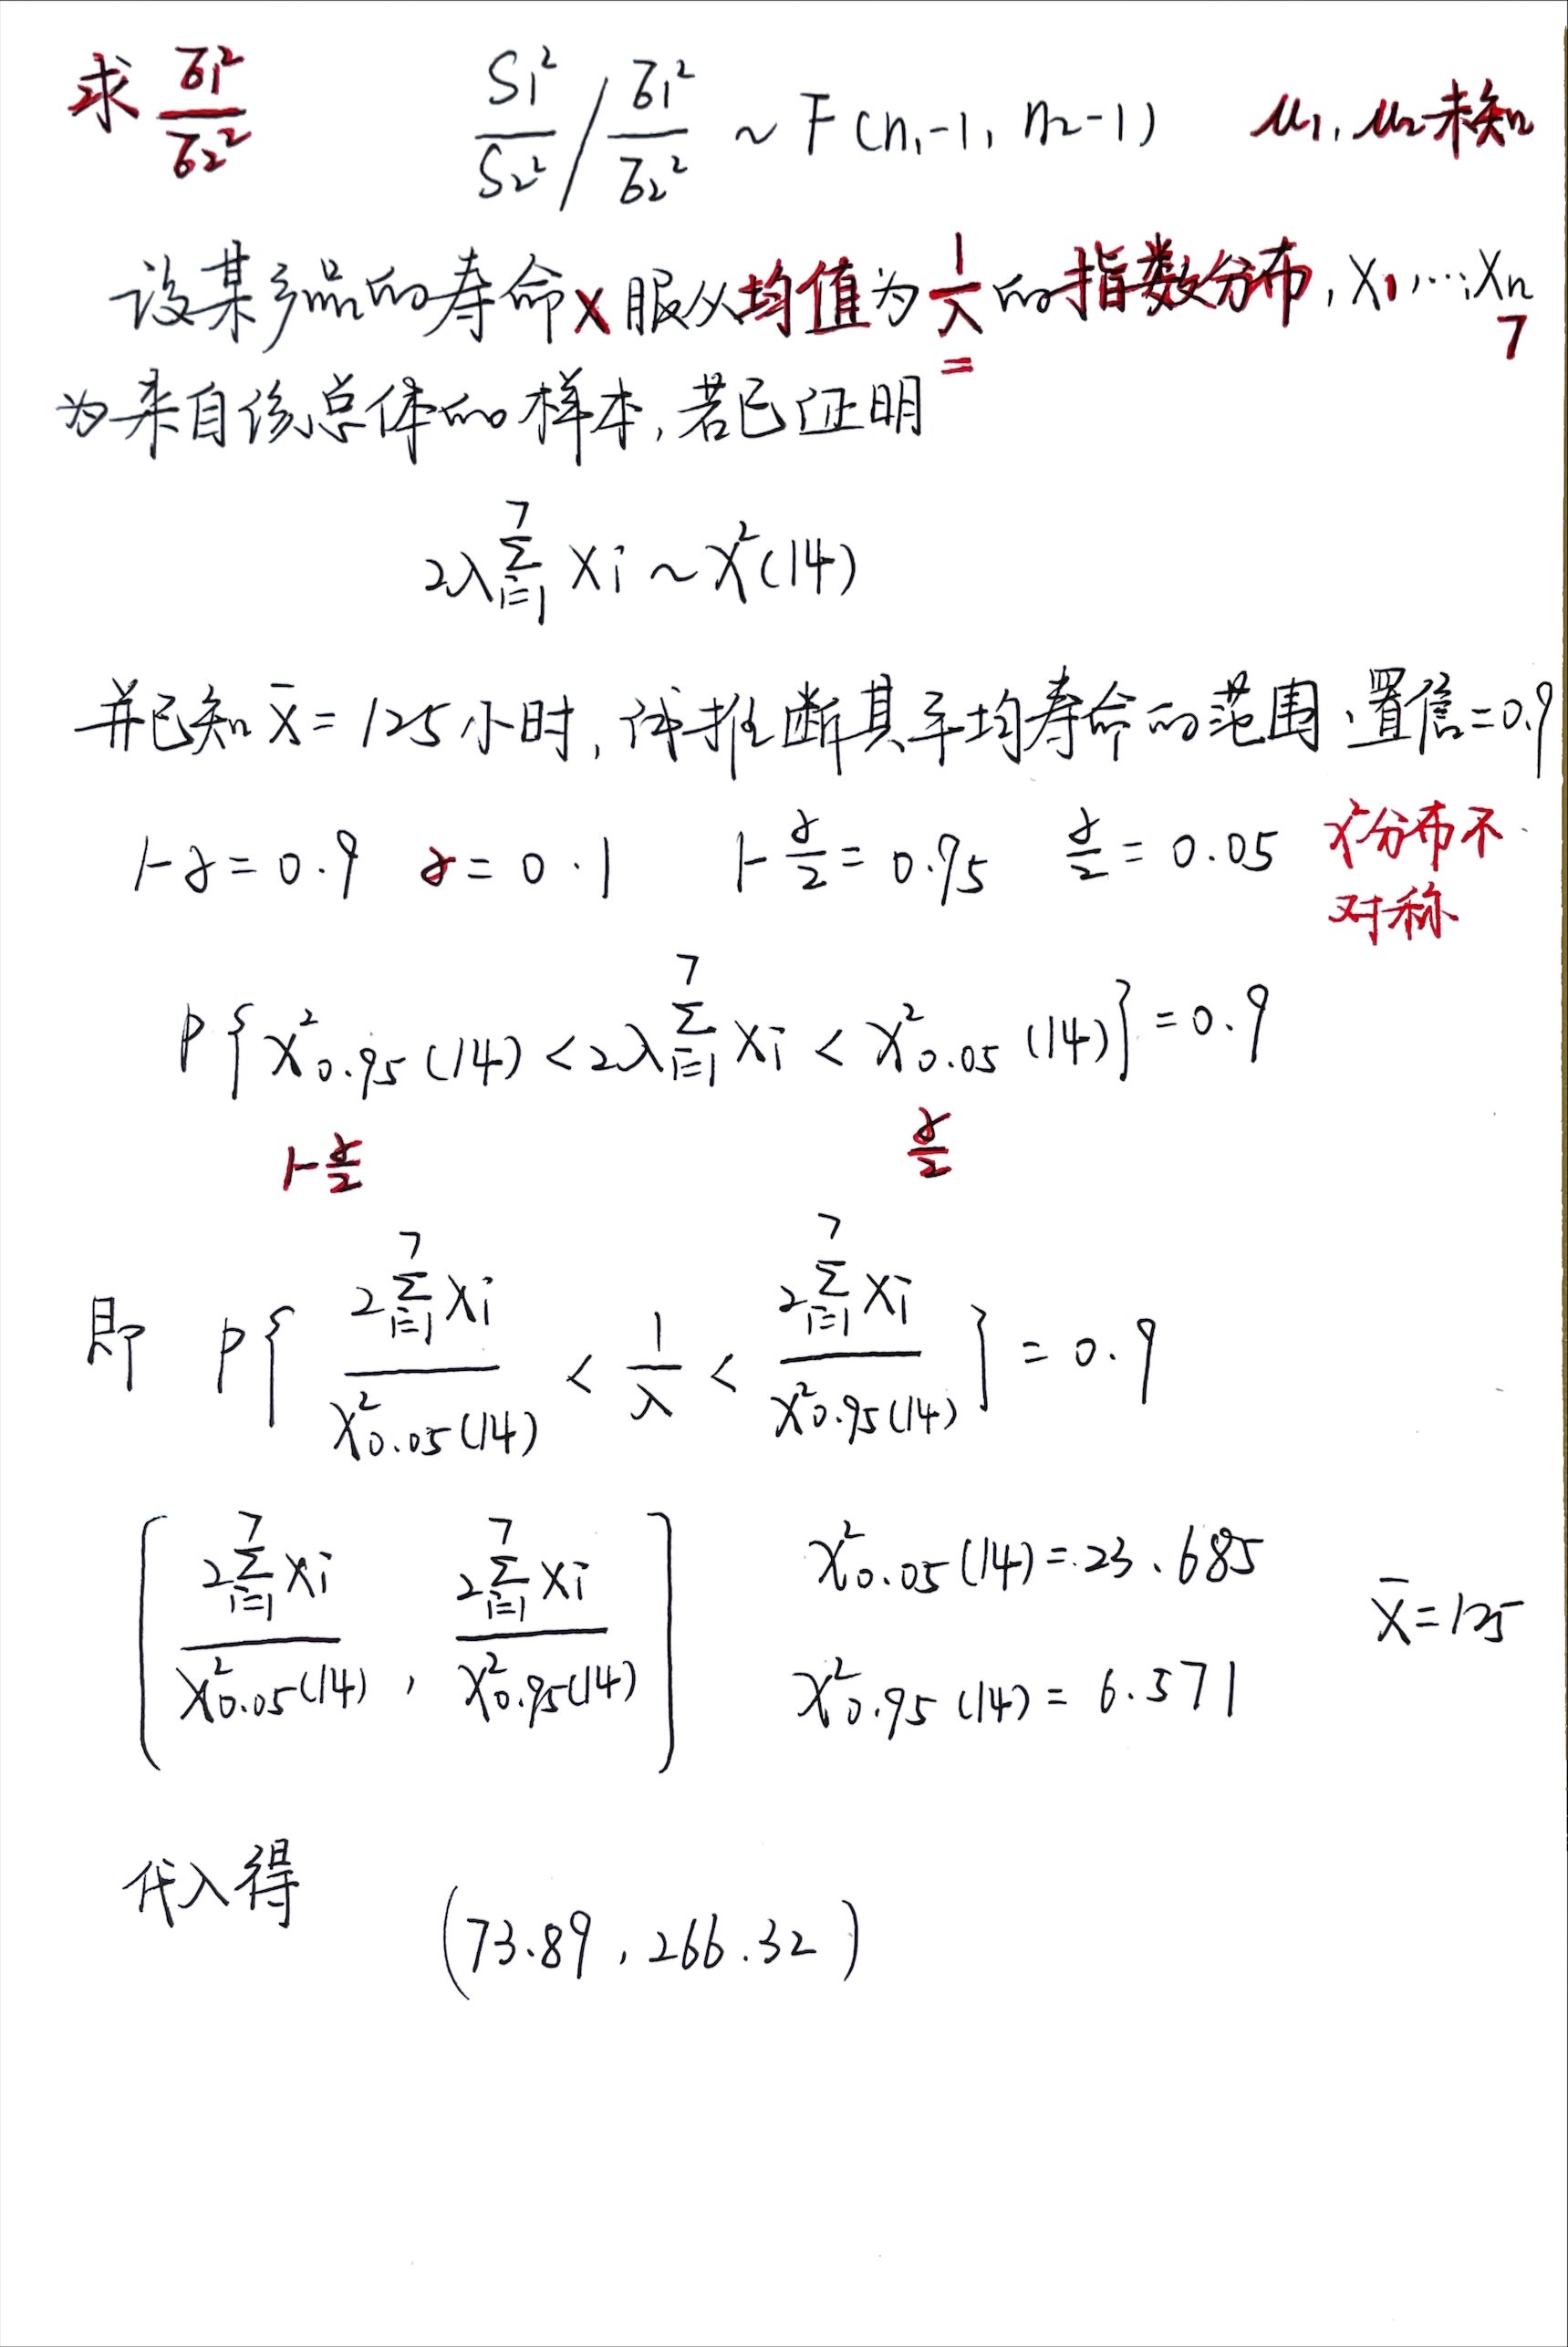 求 σ1²/σ2² S1²/S2² / σ1²/σ2² ~ F(n1-1, n2-1) μ1, μ2未知
设某产品的寿命X服从均值为1/λ的指数分布, X1,…,Xn
7
为来自该总体的样本,若已证明
2λ∑_{i=1}^{7} Xi ~ χ²(14)
并已知 X̄ = 125小时,试推断其平均寿命的范围、置信=0.9
1-α = 0.9 α = 0.1 1-α/2 = 0.95 α/2 = 0.05 χ²分布不
对称
P{χ²0.95(14) < 2λ∑_{i=1}^{7} Xi < χ²0.05(14)} = 0.9
1-α/2 α/2
即 P{ 2∑_{i=1}^{7} Xi / χ²0.05(14) < 1/λ < 2∑_{i=1}^{7} Xi / χ²0.95(14) } = 0.9
( 2∑_{i=1}^{7} Xi / χ²0.05(14) , 2∑_{i=1}^{7} Xi / χ²0.95(14) ) χ²0.05(14) = 23.685
X̄ = 125
χ²0.95(14) = 6.571
代入得
(73.89, 266.32)